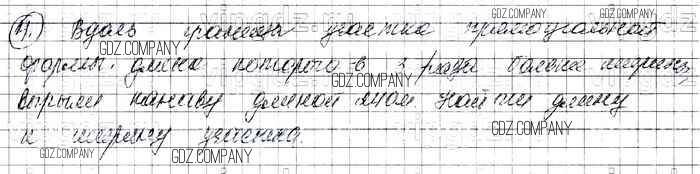 11.) Вдоль границы участка прямоугольной
формы, длина которого в 2 раза больше ширины,
вырыли канаву длиной 240м. Найти длину
и ширину участка.
GDZ.COMPANY
GDZ.COMPANY
GDZ.COMPANY
GDZ.COMPANY
GDZ.COMPANY
GDZ.COMPANY
GDZ.COMPANY
GDZ.COMPANY